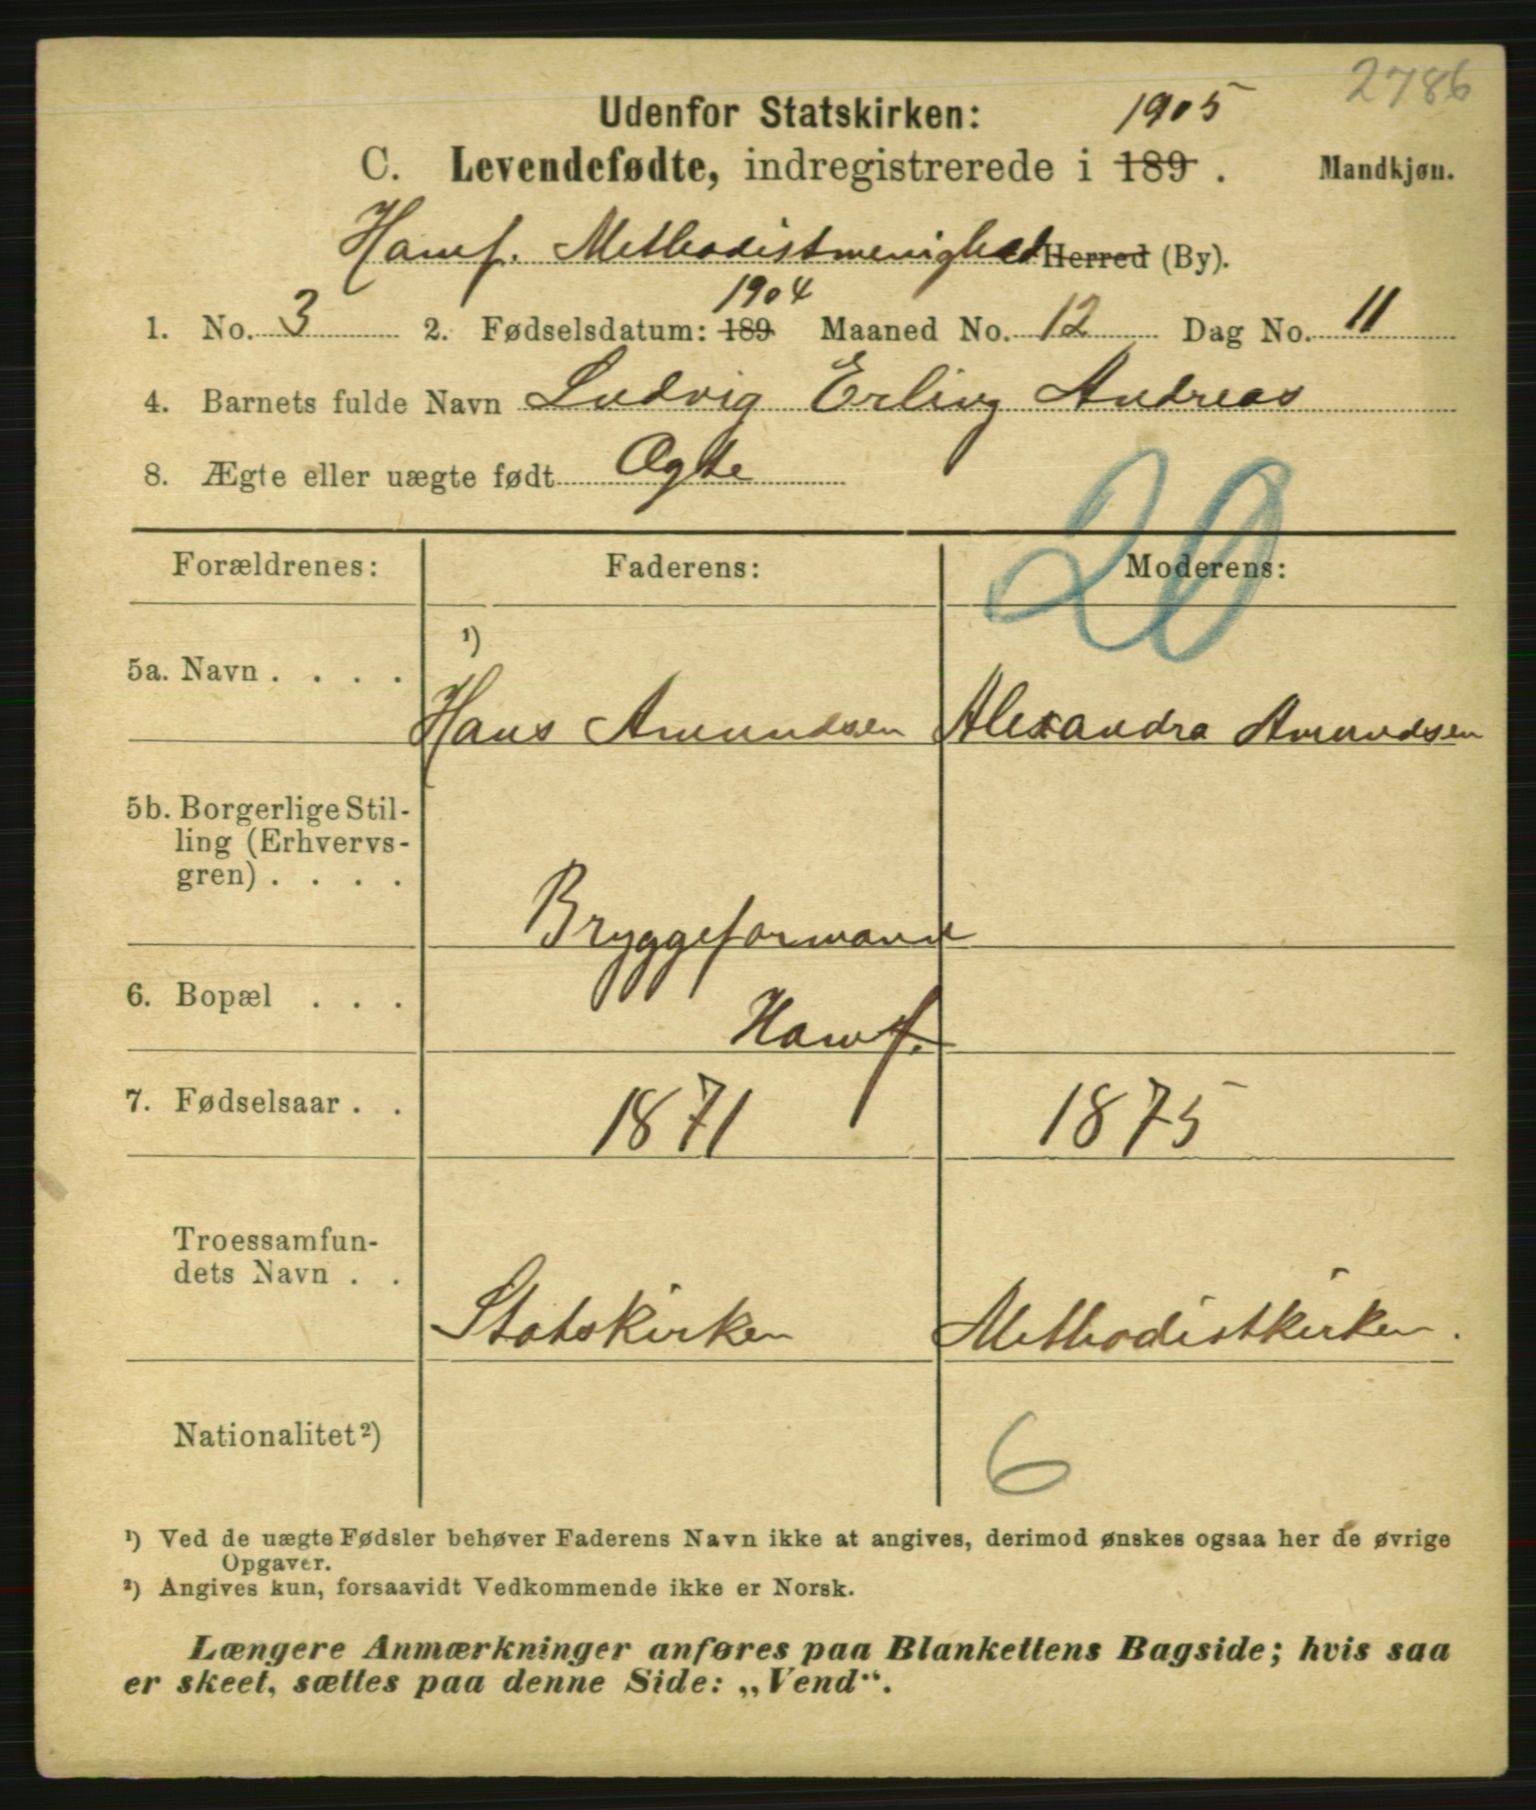 2786
Udenfor Statskirken:
1905
C. Levendefødte, indregistrerede i 189 . Mandkjøn.
Hamf. Methodistmenighed Herred (By).
1904
1. No. 3 2. Fødselsdatum: 189 Maaned No. 12 Dag No. 11
4. Barnets fulde Navn Ludvig Erling Andreas
8. Ægte eller uægte født Ægte
20
Forældrenes: Faderens: Moderens:
¹)
5a. Navn . . . . Hans Amundsen Alexandra Amundsen
5b. Borgerlige Stil-
ling (Erhvervs-
gren) . . . . Bryggeformand
6. Bopæl . . . Hamf.
7. Fødselsaar . . 1871 1875
Troessamfun-
dets Navn . . Statskirken Methodistkirken.
Nationalitet²) 6
¹) Ved de uægte Fødsler behøver Faderens Navn ikke at angives, derimod ønskes ogsaa her de øvrige
Opgaver.
²) Angives kun, forsaavidt Vedkommende ikke er Norsk.
Længere Anmærkninger anføres paa Blankettens Bagside; hvis saa
er skeet, sættes paa denne Side: „Vend“.